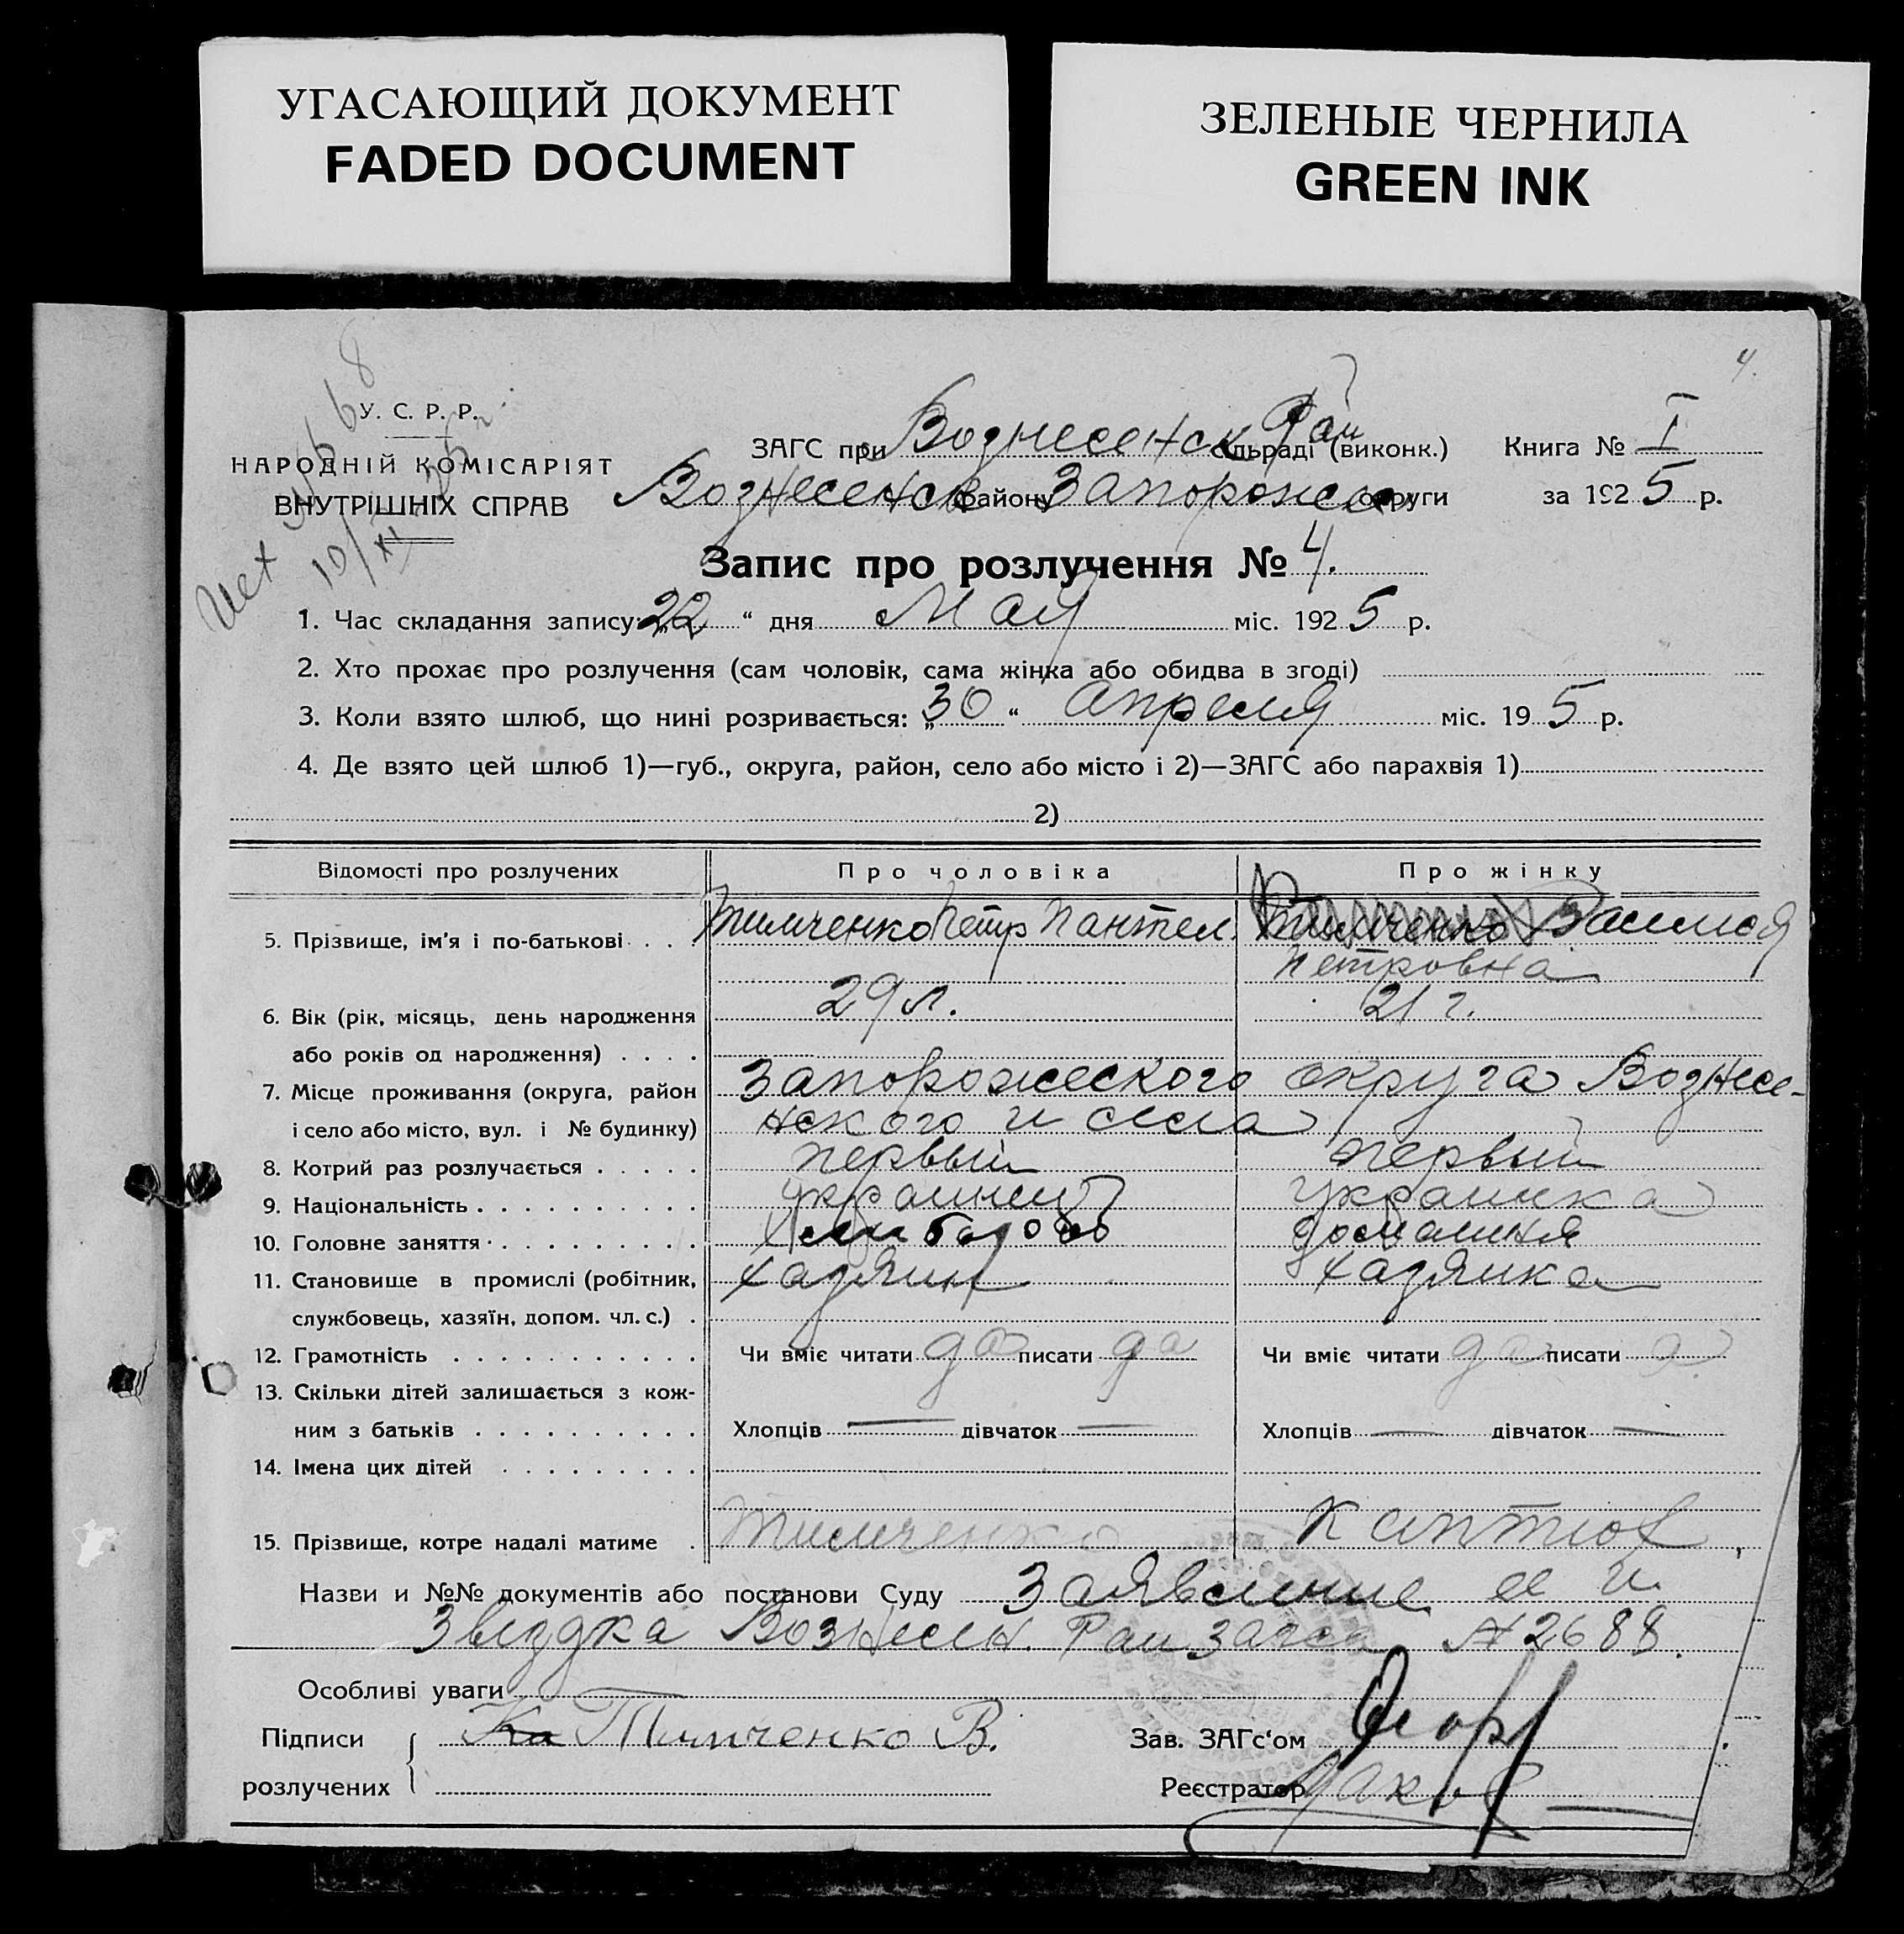 УГАСАЮЩИЙ ДОКУМЕНТ
FADED DOCUMENT
ЗЕЛЕНЫЕ ЧЕРНИЛА
GREEN INK
4.
У. С. Р. Р.
НАРОДНІЙ КОМІСАРІЯТ
ВНУТРІШНІХ СПРАВ
Исх
10/XI
ЗАГС при Вознесенск Рай сільраді (виконк.) Книга № I
Вознесенск району Запорожск округи за 1925 р.
Запис про розлучення № 4.
1. Час складання запису: „22“ дня Мая міс. 1925 р.
2. Хто прохає про розлучення (сам чоловік, сама жінка або обидва в згоді)
3. Коли взято шлюб, що нині розривається: „30“ Апреля міс. 19 5 р.
4. Де взято цей шлюб 1)—губ., округа, район, село або місто і 2)—ЗАГС або парахвія 1)
2)
Відомості про розлучених Про чоловіка Про жінку
5. Прізвище, ім'я і по-батькові . . . Тимченко Петр Пантел. Тимченко
Петровна
6. Вік (рік, місяць, день народження 29 л. 21 г.
або років од народження) . . . .
7. Місце проживання (округа, район Запорожеского округа Вознесе-
і село або місто, вул. і № будинку) нского и села
8. Котрий раз розлучається . . . . . первый первый
9. Національність . . . . . . . . . . украинец украинка
10. Головне заняття . . . . . . . . . Хлебороб домашняя
11. Становище в промислі (робітник, хазяин хазяика
службовець, хазяїн, допом. чл. с.) .
12. Грамотність . . . . . . . . . . . Чи вміє читати да писати да Чи вміє читати да писати
13. Скільки дітей залишається з кож-
ним з батьків . . . . . . . . . . Хлопців — дівчаток — Хлопців — дівчаток —
14. Імена цих дітей . . . . . . . . .
15. Прізвище, котре надалі матиме . Тимченко Каптюх
Назви и №№ документів або постанови Суду Заявление ее и
Звиздка Вознесен. Рай загса № 2688.
Особливі уваги
Підписи Тимченко В. Зав. ЗАГс‘ом
розлучених Реєстратор